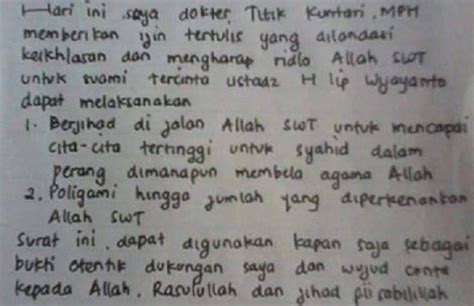 Hari ini saya dokter Titik Kuntari, MPH
memberikan izin tertulis yang dilandasi
keikhlasan dan mengharap ridlo Allah SWT
untuk suami tercinta ustadz H Iip Wijayanto
dapat melaksanakan
1. Berjihad di jalan Allah SWT untuk mencapai
cita-cita tertinggi untuk syahid dalam
perang dimanapun membela agama Allah
2. Poligami hingga jumlah yang diperkenankan
Allah SWT
Surat ini dapat digunakan kapan saja sebagai
bukti otentik dukungan saya dan wujud cinta
kepada Allah, Rasulullah dan jihad fii sabilillah